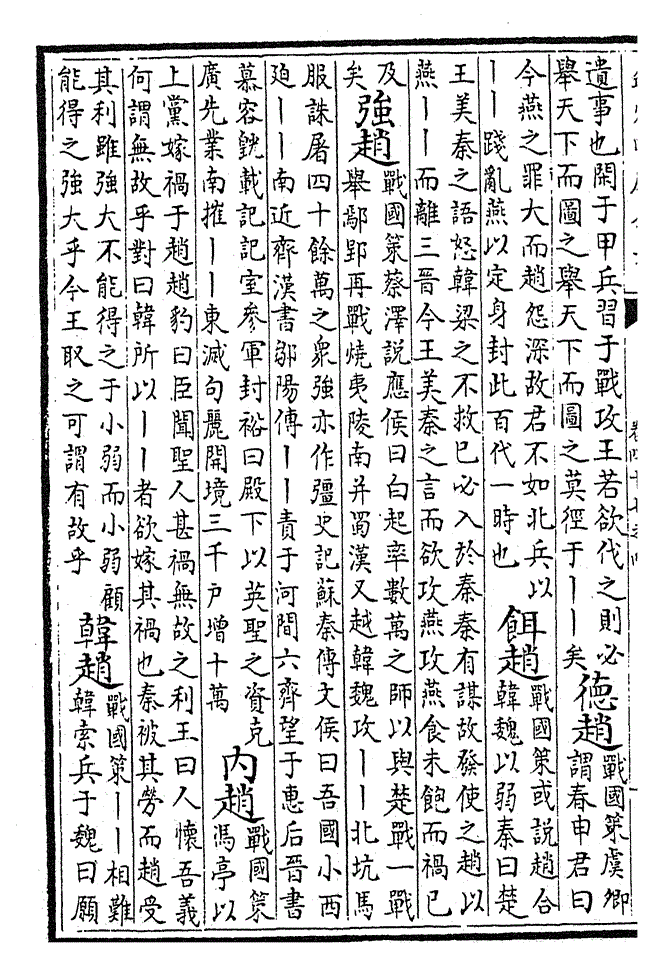 遺事也閑于甲兵習于戰攻王若欲伐之則必
舉天下而圖之舉天下而圖之莫徑于｜｜矣
德趙
戰國策虞卿
謂春申君曰
今燕之罪大而趙怨深故君不如北兵以
｜｜踐亂燕以定身封此百代一時也
餌趙
戰國策或說趙合
韓魏以弱秦曰楚
王美秦之語怒韓梁之不救己必入於秦秦有謀故發使之趙以
燕｜｜而離三晉今王美秦之言而欲攻燕攻燕食未飽而禍已
及
矣
強趙
戰國策蔡澤說應侯曰白起率數萬之師以與楚戰一戰
舉鄢郢再戰燒夷陵南并蜀漢又越韓魏攻｜｜北坑馬
服誅屠四十餘萬之衆強亦作彊史記蘇秦傳文侯曰吾國小西
廹｜｜南近齊漢書鄒陽傳｜｜責于河間六齊望于惠后晉書
慕容皝載記記室參軍封裕曰殿下以英聖之資克
廣先業南摧｜｜東滅句麗開境三千戶增十萬
內趙
戰國策
馮亭以
上黨嫁禍于趙趙豹曰臣聞聖人甚禍無故之利王曰人懷吾義
何謂無故乎對曰韓所以｜｜者欲嫁其禍也秦被其勞而趙受
其利雖強大不能得之于小弱而小弱顧
能得之強大乎今王取之可謂有故乎
韓趙
戰國策｜｜相難
韓索兵于魏曰願